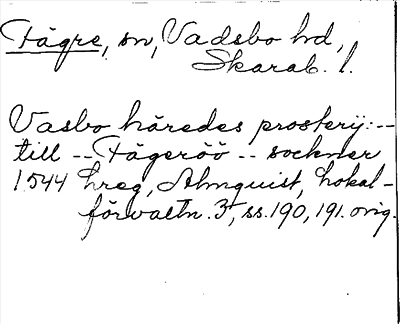 Fägre, sn, Vadsbo hd,
Skarab. l.
Vasbo häredes prosterij: --
till -- Fägeröö -- sockner
1544 hreg, Almquist, Lokal-
förvaltn. 3, ss. 190, 191. orig.